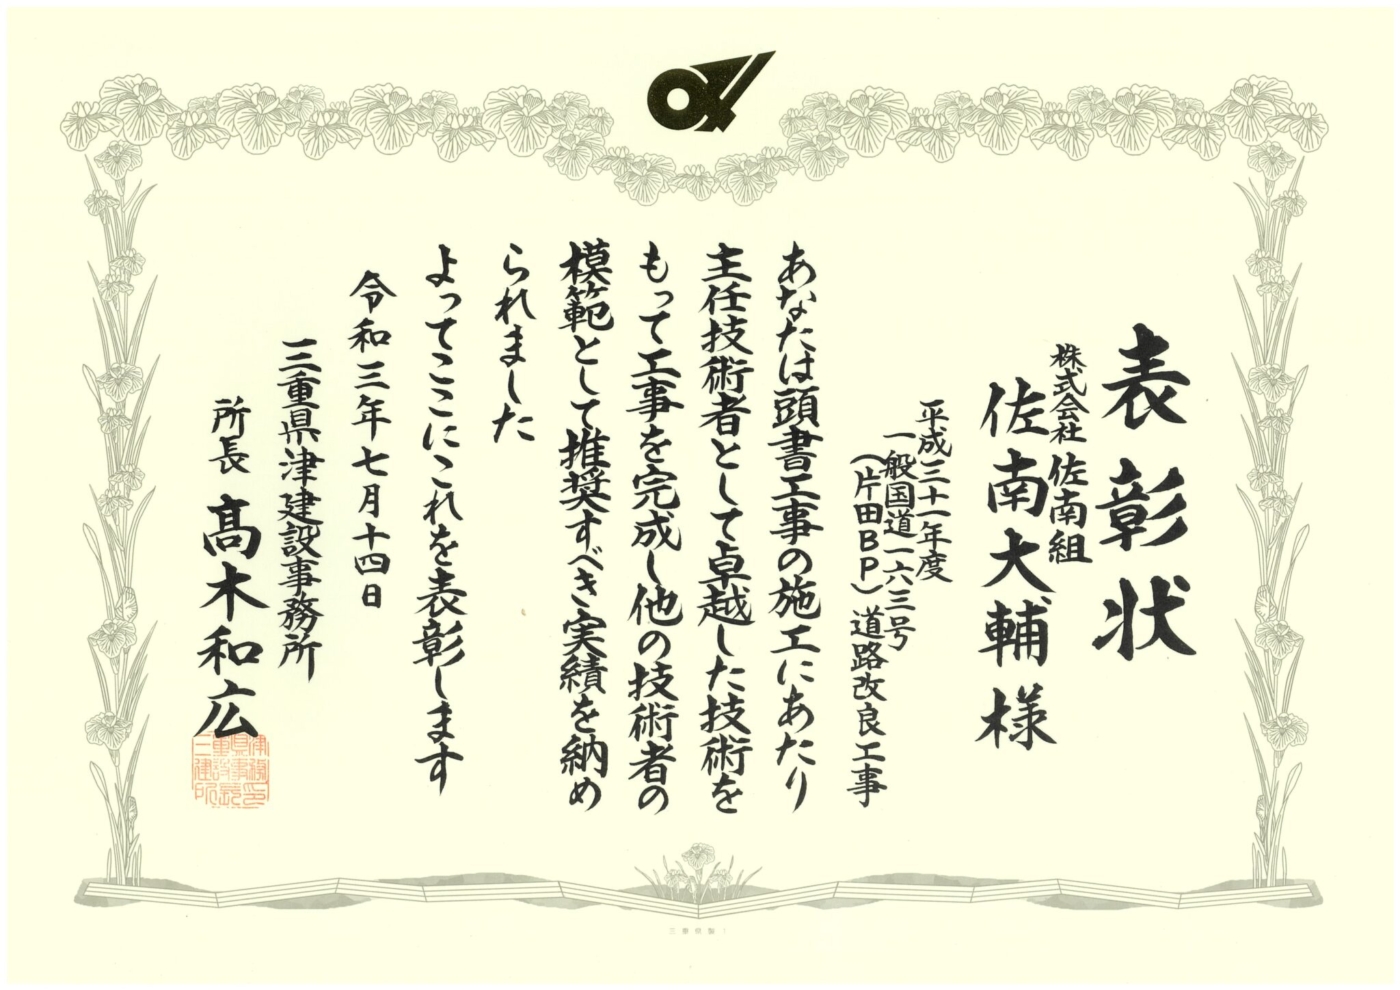 表彰状
株式会社 佐南組
佐南大輔 様
平成三十一年度
一般国道一六三号
(片田BP)道路改良工事
あなたは頭書工事の施工にあたり
主任技術者として卓越した技術を
もって工事を完成し他の技術者の
模範として推奨すべき実績を納め
られました
よってここにこれを表彰します
令和三年七月十四日
三重県津建設事務所
所長 髙木和広